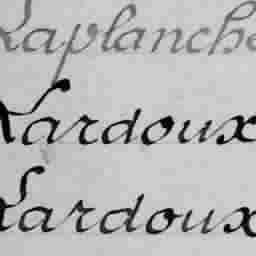 Laplanche
Lardoux
Lardoux